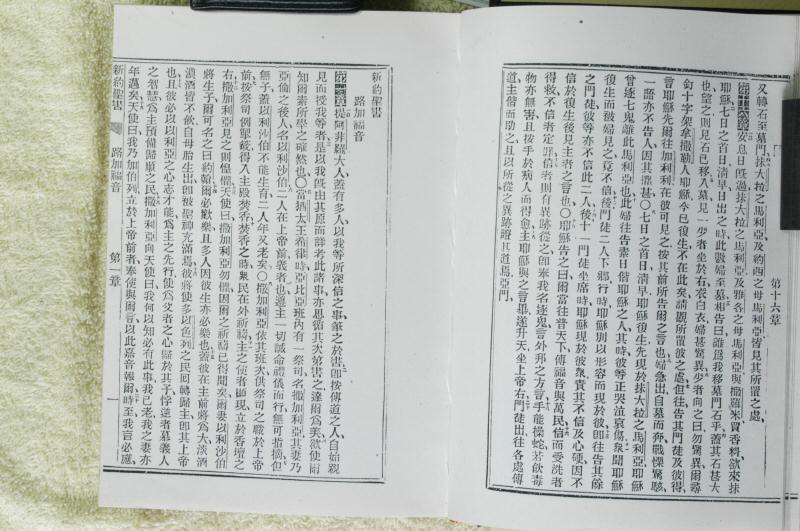 第十六章
又轉石至墓門抹大拉之馬利亞及約西之母馬利亞皆見其所置之處
安息日旣過抹大拉之馬利亞及雅各之母馬利亞與撒羅米買香料欲來抹
耶穌七日之首日淸早日出之時此數婦至墓相告曰誰爲我移墓門石乎蓋其石甚大
也望之則見石已移入墓見一少者坐於右衣白衣婦甚驚異少者向之曰勿驚異爾尋
釘十字架拿撒勒人耶穌今已復生不在此矣請觀所置彼之處但往告其門徒及彼得
曰耶穌先爾往加利利在彼可見之按其前所告爾之言也婦急出自墓而奔戰慄驚駭
一語亦不告人因其懼甚〇七日之首日淸早耶穌復生先現於抹大拉之馬利亞耶穌
曾逐七鬼離此馬利亞也此婦往告素日偕耶穌之人其時彼等正哭泣哀傷衆聞耶穌
復生而婦見之竟不信後門徒二人下鄉行時耶穌別以形容而現於彼卽往告其餘
之門徒彼等亦不信此二人後十一門徒坐席時耶穌現於彼衆責其不信及心硬因不
信於復生後見主者之言也〇耶穌告之曰爾當往普天下傳福音與萬民信而受洗者
得救不信者定罪信者則有異跡從之卽奉我名逐鬼言外邦之方言手能操蛇若飲毒
物亦無害且按手於病人而得愈主耶穌與之言畢遂升天坐上帝右門徒出往各處傳
道主偕而助之且以所從之異跡證其道焉亞門
新約聖書
路加福音
提阿非羅大人蓋有多人以我等所深信之事筆之於書卽按傳道之人自始親
見而授我等者是以我旣由其原而詳考此諸事亦思循其次第書之達爾爲美欲使爾
知爾素所學之確然也〇當猶太王希律時亞比亞班內有一祭司名撒加利亞其妻乃
亞倫之後人名以利沙伯二人在上帝前義者也遵主一切誡命禮儀而行無可指摘但
無子蓋以利沙伯不能生育二人年又老矣〇撒加利亞依其班次供祭司之職於上帝
前按祭司例掣籤得入主殿焚香焚香之時衆民在外祈禱主之使者顯現立於香壇之
右撒加利亞見之則惶懼天使曰撒加利亞勿懼因爾之祈禱已得聞矣爾妻以利沙伯
將生子爾可名之曰約翰爾必歡樂且多人因彼生亦必樂也蓋彼在主前將爲大淡酒
濃酒皆不飲自母胎生出卽被聖神充滿焉彼將使多以色列之民回轉歸主卽其上帝
也且彼必以以利亞之心志才能爲主之先行使爲父者之心歸於其子悖逆者慕義人
之智慧爲主預備歸順之民撒加利亞向天使曰我何以知必有此事我已老我之妻亦
年邁矣天使曰我乃加伯列立於上帝前者奉使與爾言以此嘉音報爾時至我言必應
新約聖書
路加福音
第一章
一